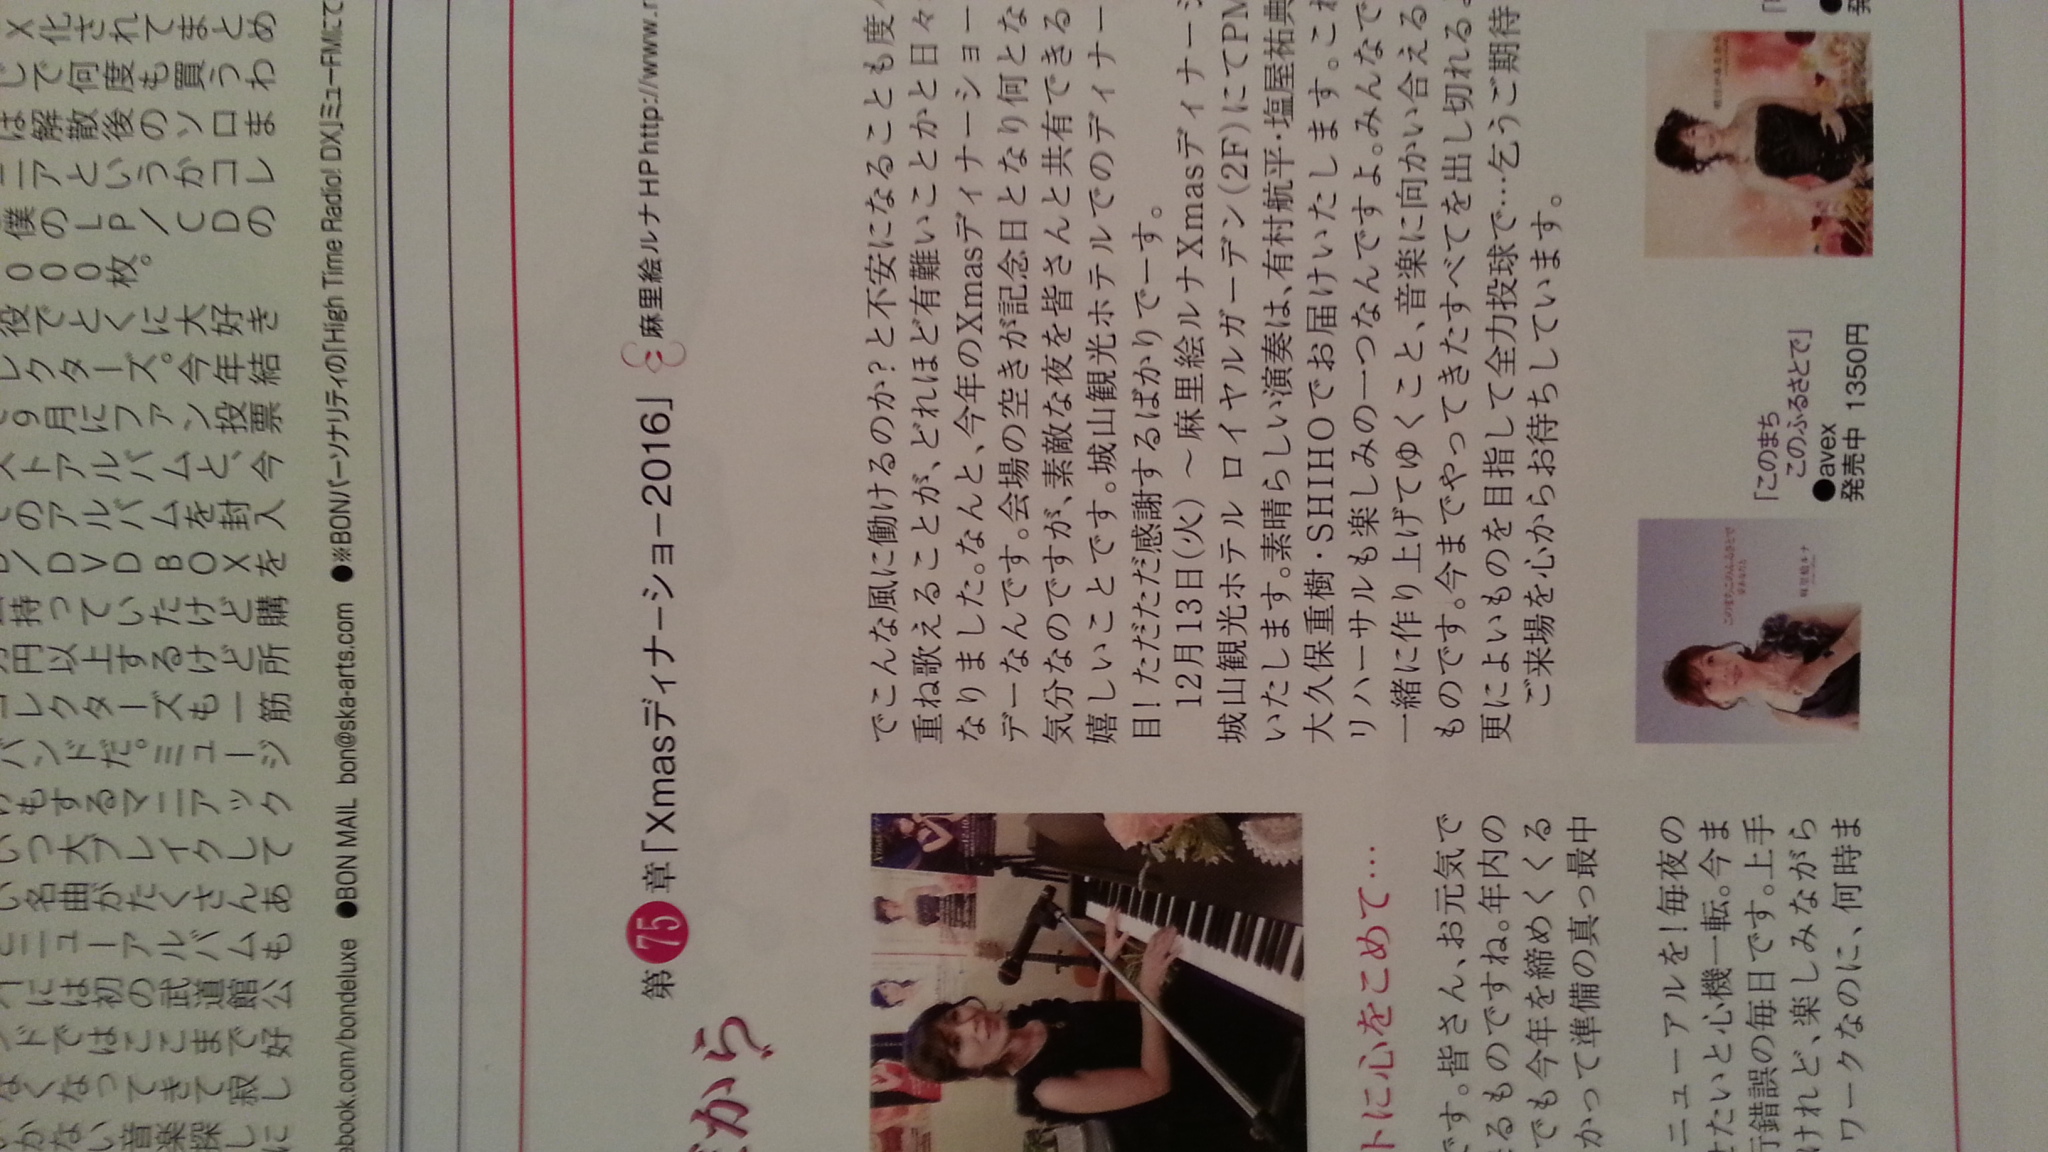 X化されてまとめ
して何度も買うわ
は解散後のソロま
ニアというがコレ
僕のLP/CDの
000枚。
役でとくに大好き
レクターズ。今年結
9月にファン投票
ストアルバムと、今
のアルバムを封入
D/DVD BOXを
持っていたけど購
円以上するけど所
コレクターズも一筋
バンドだ。ミュージ
けもするマニアック
いつ大ブレイクして
い名曲がたくさんあ
とニューアルバムも
には初の武道館公
ンドではここまで好
なくなってきて寂し
かない音楽探しに
ebook.com/bondeluxe ●BON MAIL bon@ska-arts.com ●※BONパーソナリティの「High Time Radio! DX」ミューFMにて
から
第75章「Xmasディナーショー2016」 麻里絵ルナHP http://www.r
トに心をこめて…
です。皆さん、お元気で
るものですね。年内の
でも今年を締めくくる
かって準備の真っ最中
ニューアルを!毎夜の
せたいと心機一転。今ま
行錯誤の毎日です。上手
けれど、楽しみながら
ワークなのに、何時ま
でこんな風に働けるのか?と不安になることも度々
重ね歌えることが、どれほど有難いことかと日々
なりました。なんと、今年のXmasディナーショー
デーなんです。会場の空きが記念日となり何とな
気分なのですが、素敵な夜を皆さんと共有できる
嬉しいことです。城山観光ホテルでのディナー
目!ただただ感謝するばかりでーす。
12月13日(火) ～麻里絵ルナXmasディナーシ
城山観光ホテル ロイヤルガーデン(2F)にてPM
いたします。素晴らしい演奏は、有村航平・塩屋祐典
大久保重樹・SHIHOでお届けいたします。これ
リハーサルも楽しみの一つなんですよ。みんなで
一緒に作り上げてゆくこと、音楽に向かい合える
ものです。今までやってきたすべてを出し切れる。
更によいものを目指して全力投球で…乞うご期待
ご来場を心からお待ちしています。
このまちこのふるさとで
麻里絵ルナ
「このまち
このふるさとで」
●avex
発売中 1350円